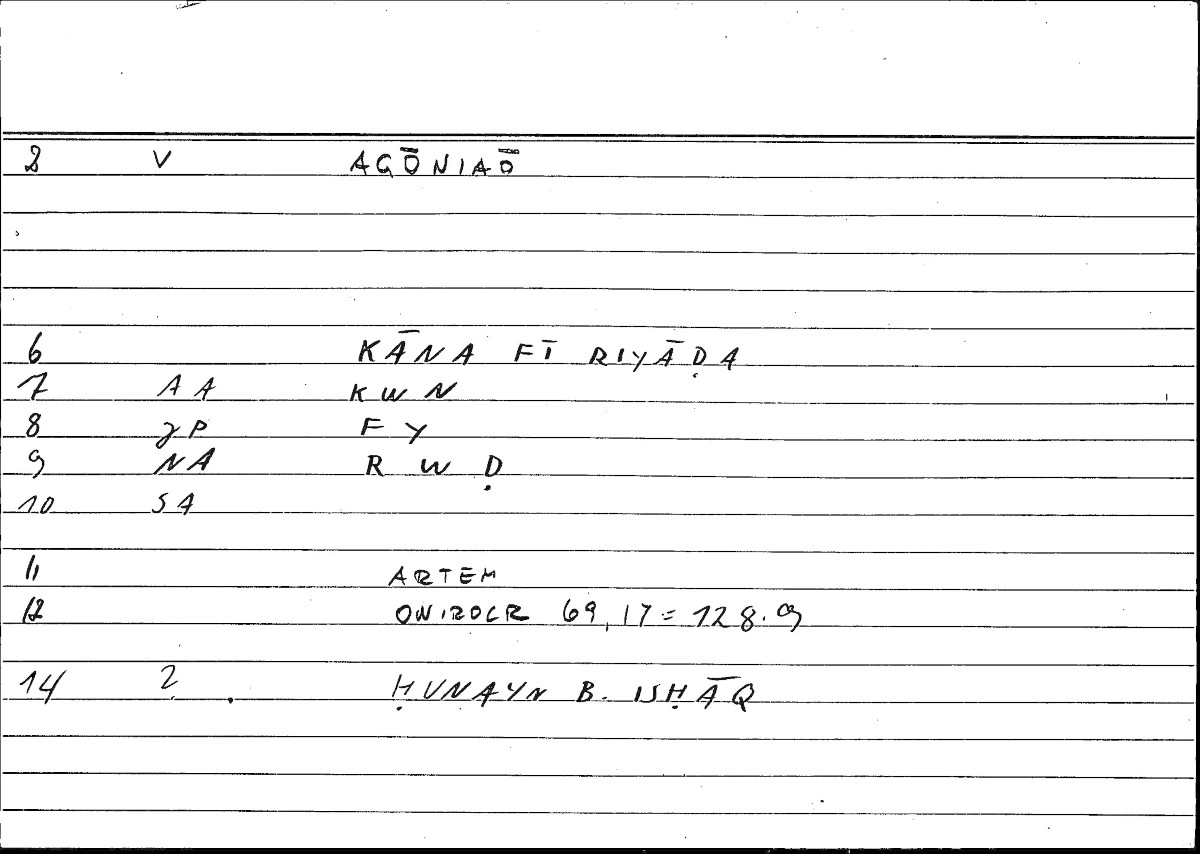 2 V AGŌNIAŌ
6 KĀNA FĪ RIYĀḌA
7 AA KWN
8 γP FY
9 NA R W Ḍ
10 SA
11 ARTEM
12 ONIROCR 69,17=128.9
14 2 . ḤUNAYN B. ISḤĀQ